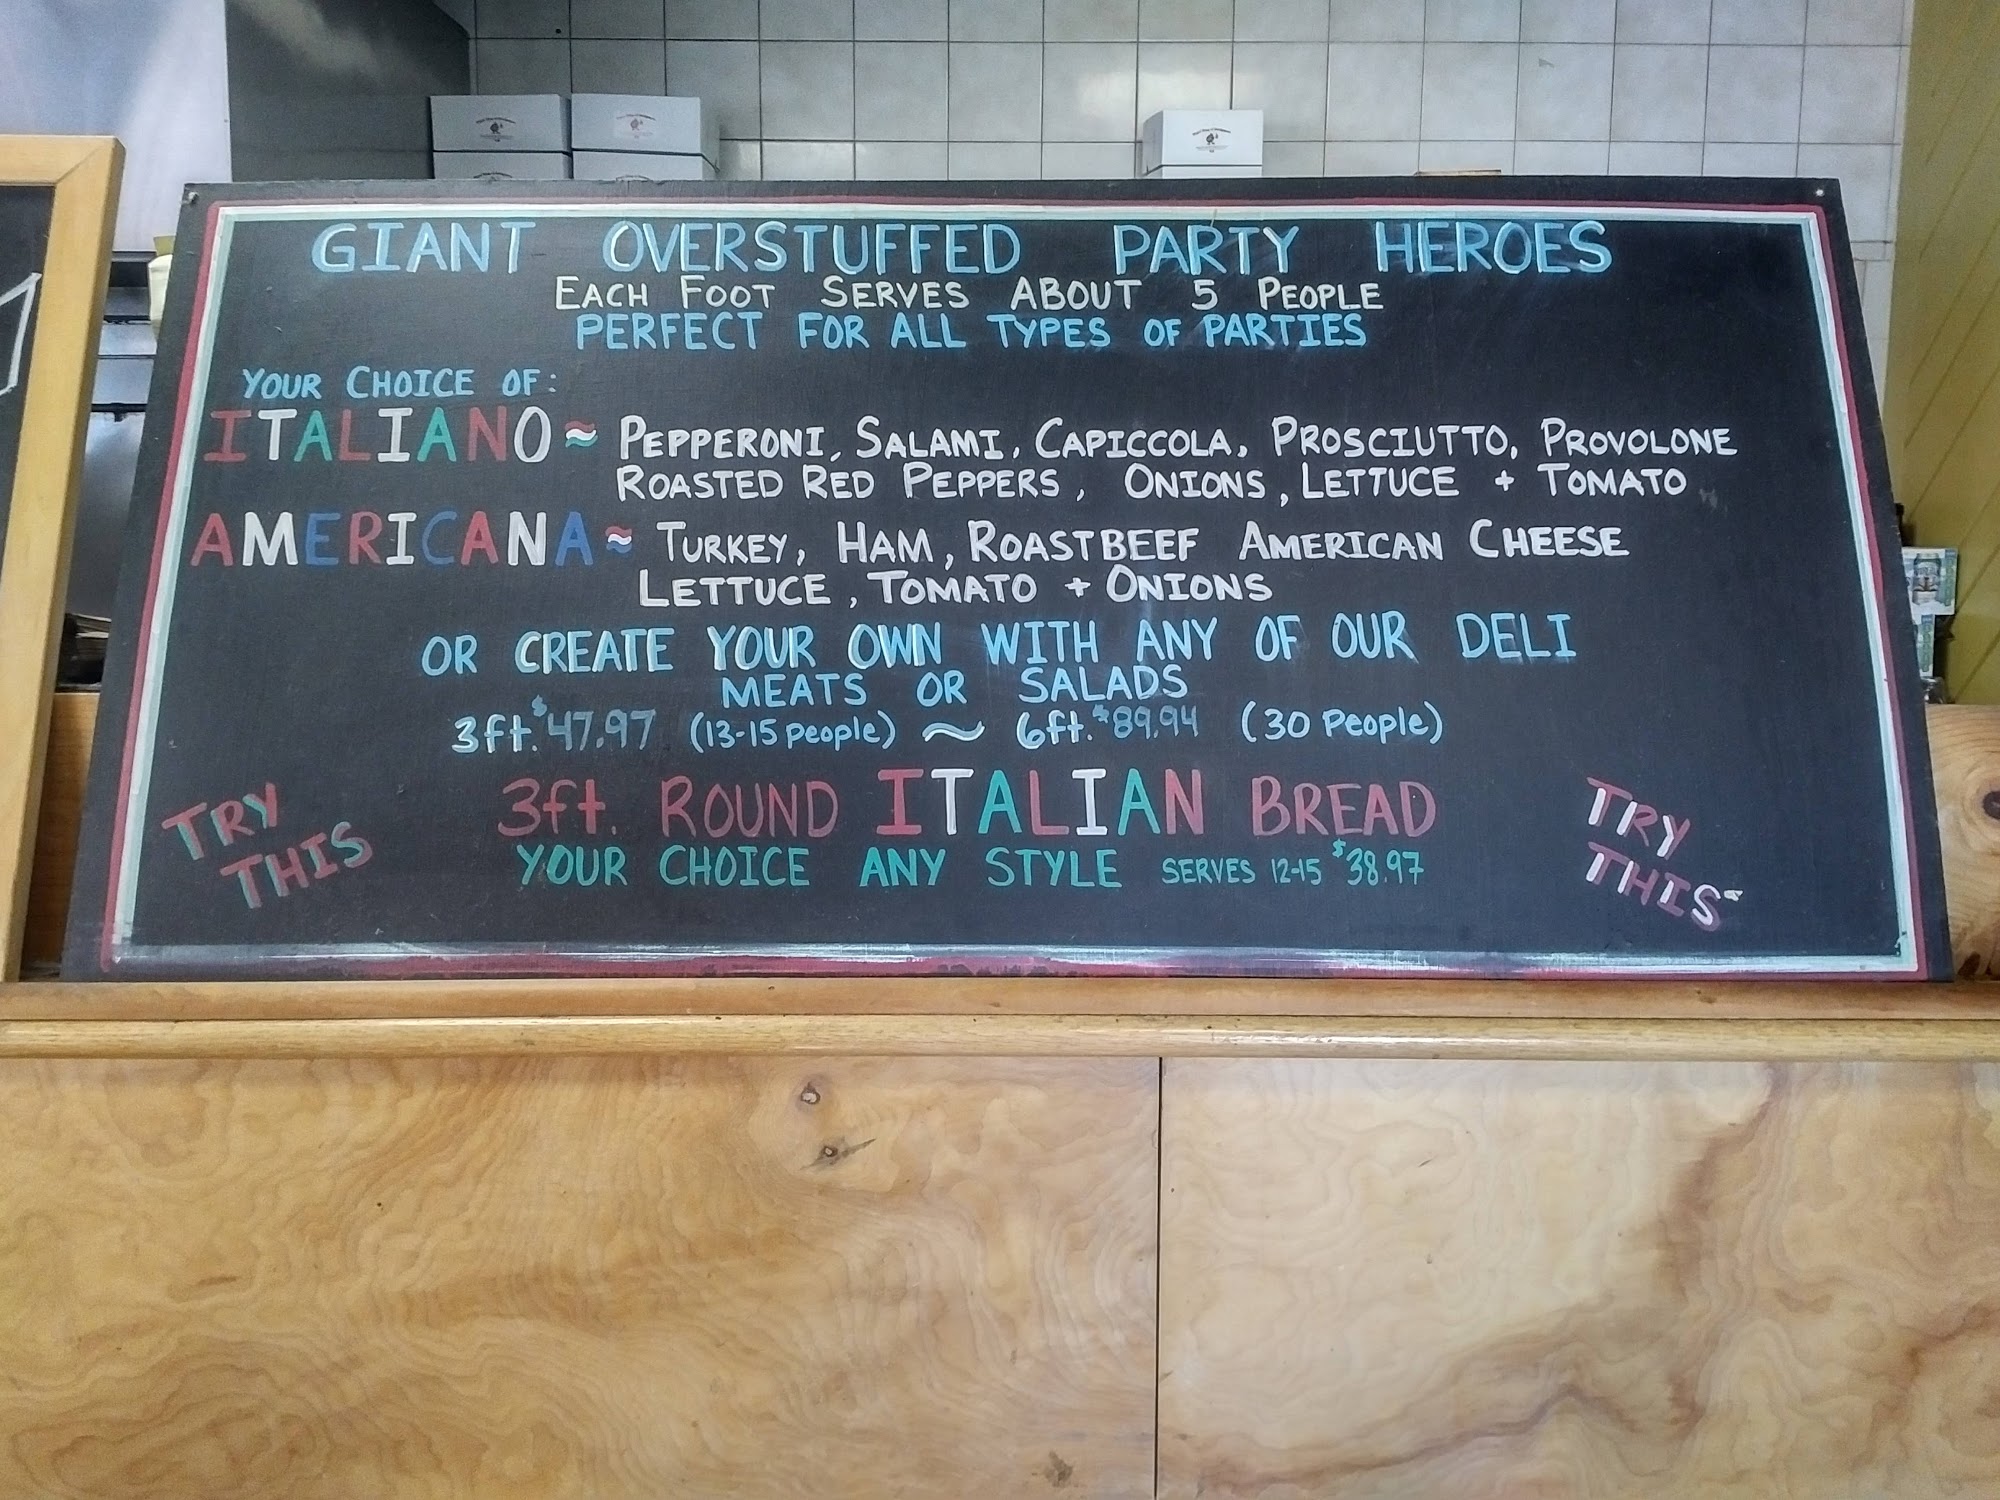 GIANT OVERSTUFFED PARTY HEROES
EACH FOOT SERVES ABOUT 5 PEOPLE
PERFECT FOR ALL TYPES OF PARTIES
YOUR CHOICE OF:
ITALIANO ~ PEPPERONI, SALAMI, CAPICCOLA, PROSCIUTTO, PROVOLONE
ROASTED RED PEPPERS, ONIONS, LETTUCE + TOMATO
AMERICANA ~ TURKEY, HAM, ROASTBEEF AMERICAN CHEESE
LETTUCE, TOMATO + ONIONS
OR CREATE YOUR OWN WITH ANY OF OUR DELI
MEATS OR SALADS
3ft. $47.97 (13-15 people) ~ 6ft. $89.94 (30 People)
3ft. ROUND ITALIAN BREAD
YOUR CHOICE ANY STYLE SERVES 12-15 $38.97
TRY
THIS
TRY
THIS